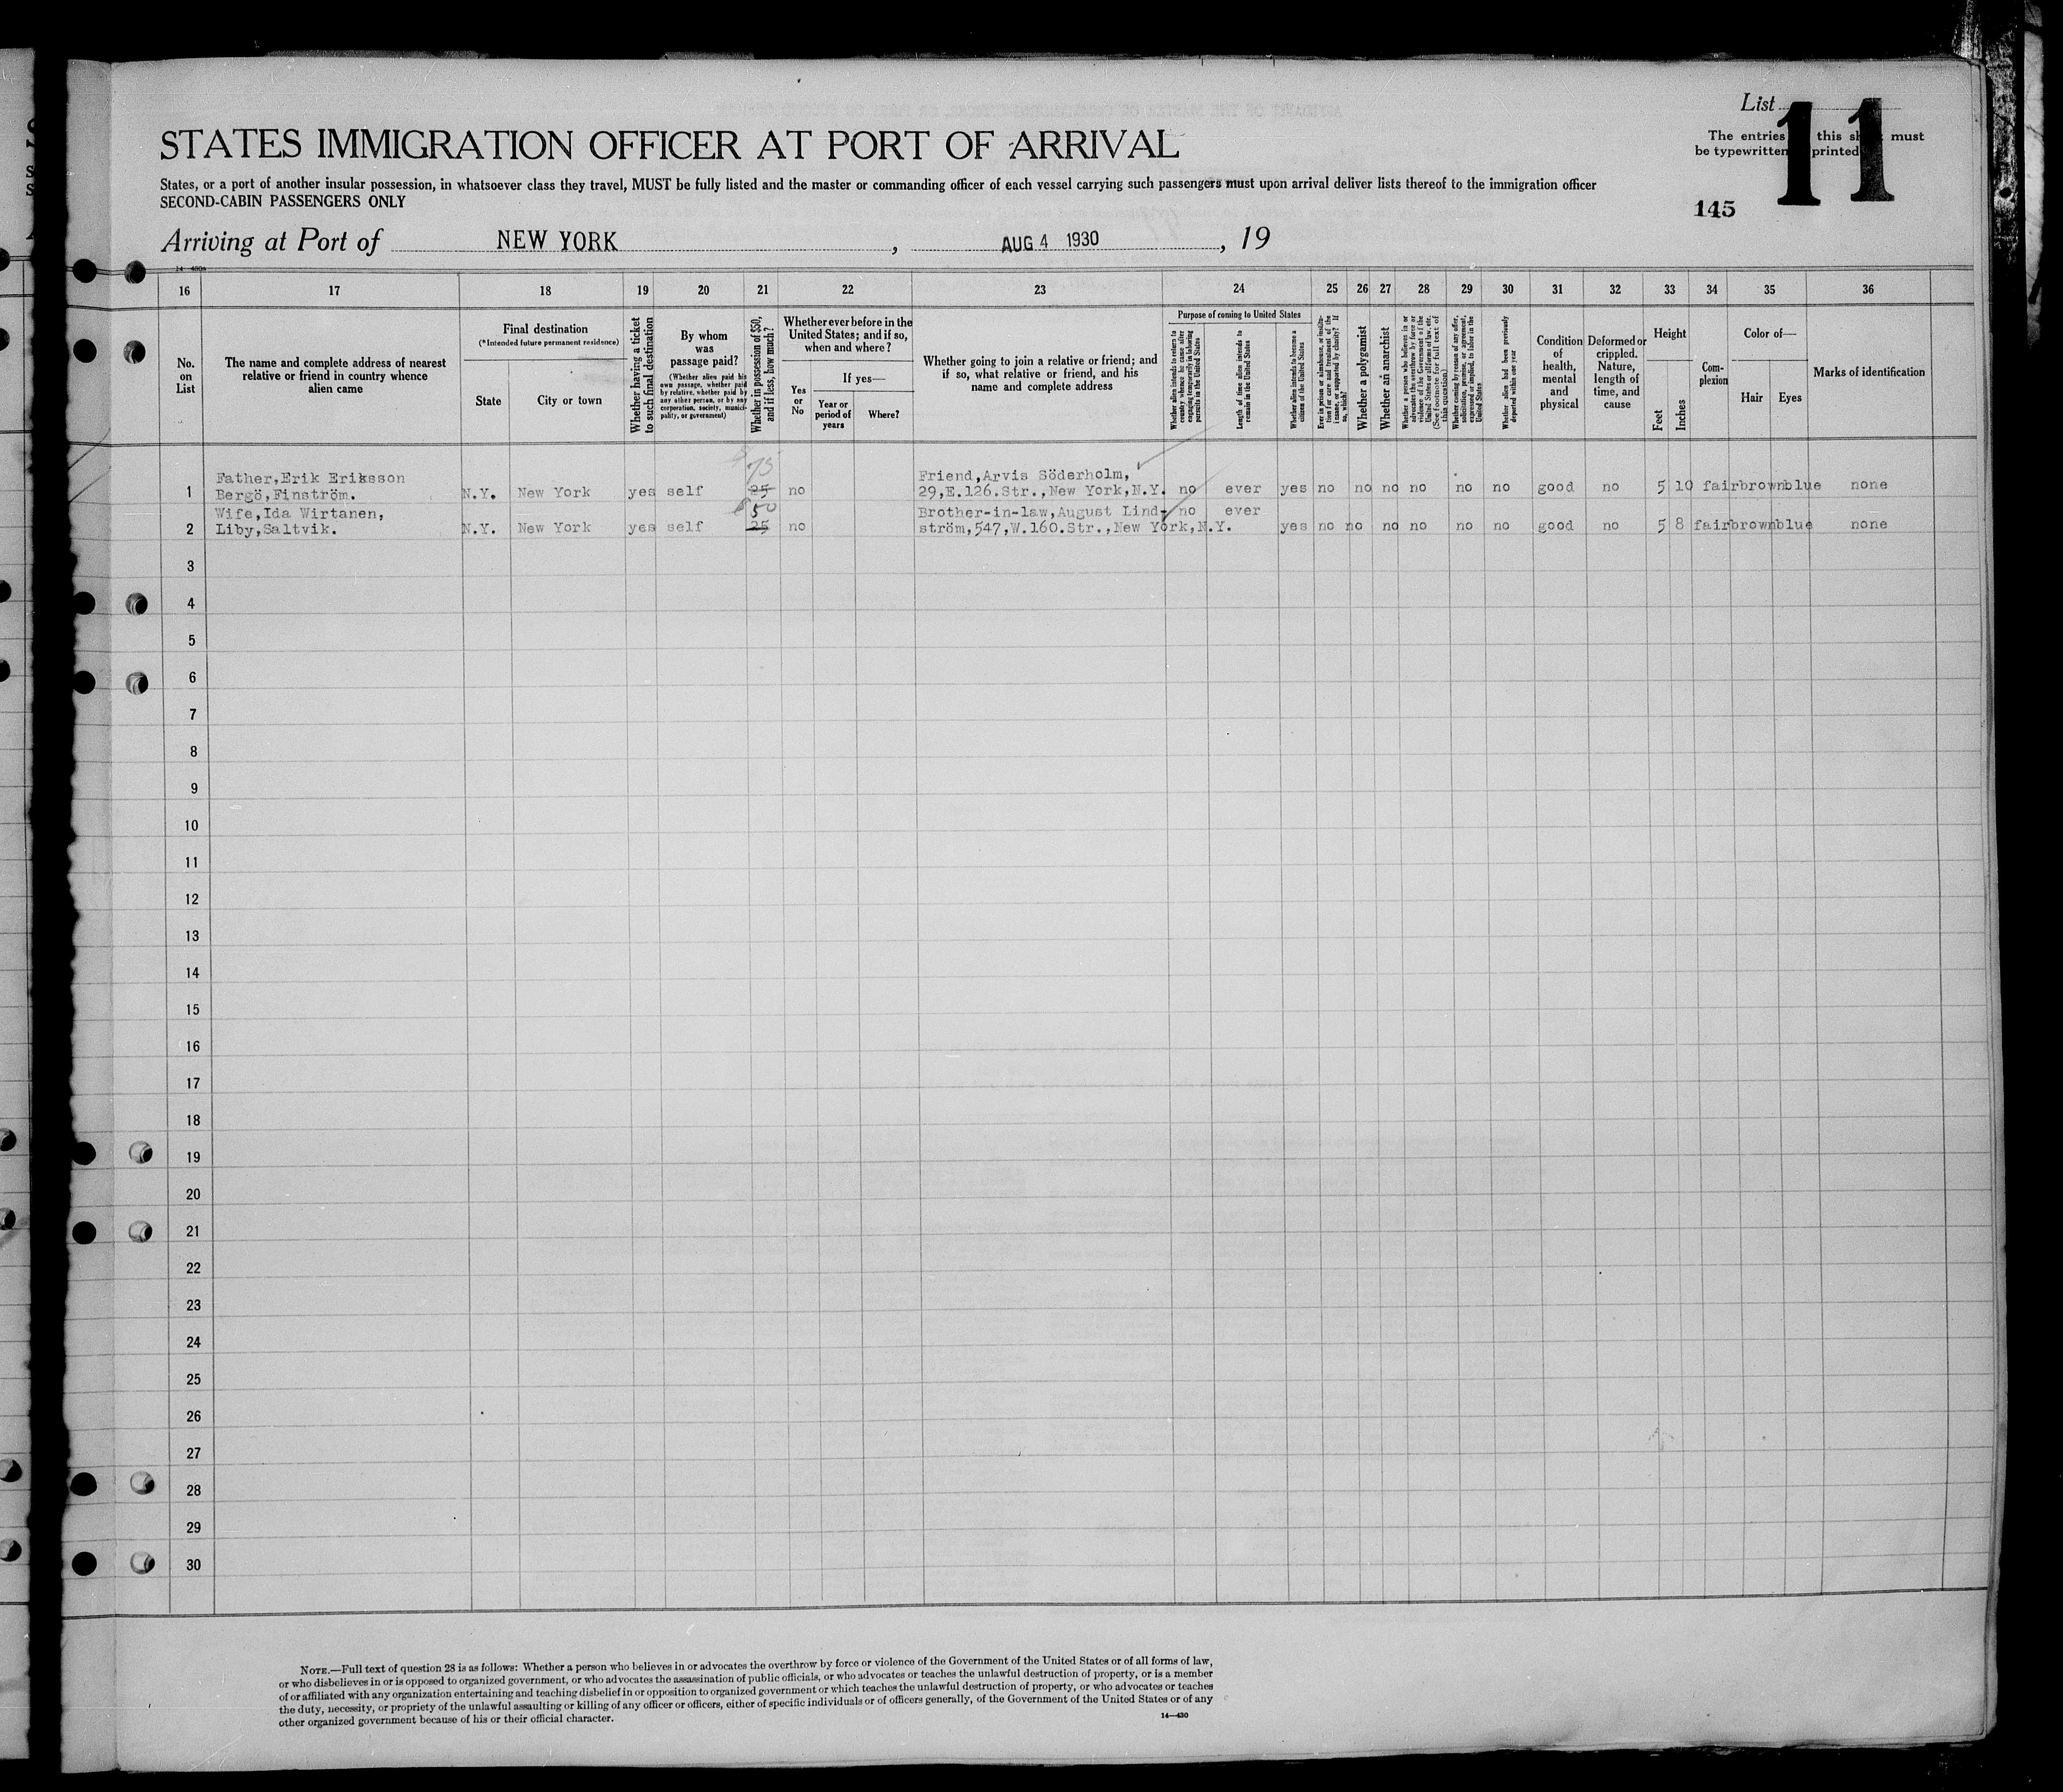 List 11
STATES IMMIGRATION OFFICER AT PORT OF ARRIVAL
The entries this must
be typewritten printed
States, or a port of another insular possession, in whatsoever class they travel, MUST be fully listed and the master or commanding officer of each vessel carrying such passengers must upon arrival deliver lists thereof to the immigration officer
SECOND-CABIN PASSENGERS ONLY
145
Arriving at Port of NEW YORK, AUG 4 1930, 19
16 17 18 19 20 21 22 23 24 25 26 27 28 29 30 31 32 33 34 35 36
No. on List
The name and complete address of nearest relative or friend in country whence alien came
Final destination
(*Intended future permanent residence)
State
City or town
Whether having a ticket to such final destination
By whom was passage paid?
(Whether alien paid his own passage, whether paid by relative, whether paid by any other person, or by any corporation, society, municipality, or government)
Whether in possession of $50, and if less, how much?
Whether ever before in the United States; and if so, when and where?
Yes or No
If yes—
Year or period of years
Where?
Whether going to join a relative or friend; and if so, what relative or friend, and his name and complete address
Purpose of coming to United States
Whether alien intends to return to country whence he came after engaging temporarily in laboring pursuits in the United States
Length of time alien intends to remain in the United States
Whether alien intends to become a citizen of the United States
Ever in prison or almshouse, or institution for care and treatment of the insane, or supported by charity? If so, which?
Whether a polygamist
Whether an anarchist
Whether a person who believes in or advocates the overthrow by force or violence of the Government of the United States or all forms of law, etc. (See footnote for full text of this question)
Whether coming by reason of any offer, solicitation, promise, or agreement, expressed or implied, to labor in the United States
Whether alien had been previously deported within one year
Condition of health, mental and physical
Deformed or crippled. Nature, length of time, and cause
Height
Feet
Inches
Complexion
Color of—
Hair
Eyes
Marks of identification
Father,Erik Eriksson 75 Friend,Arvis Söderholm,
1 Bergö,Finström. N.Y. New York yes self 25 no 29,E.126.Str.,New York,N.Y. no ever yes no no no no no no good no 5 10 fair brown blue none
Wife,Ida Wirtanen, $50 Brother-in-law,August Lind- no ever
2 Liby,Saltvik. N.Y. New York yes self 25 no ström,547,W.160.Str.,New York,N.Y. yes no no no no no no good no 5 8 fair brown blue none
3
4
5
6
7
8
9
10
11
12
13
14
15
16
17
18
19
20
21
22
23
24
25
26
27
28
29
30
NOTE.—Full text of question 28 is as follows: Whether a person who believes in or advocates the overthrow by force or violence of the Government of the United States or of all forms of law,
or who disbelieves in or is opposed to organized government, or who advocates the assassination of public officials, or who advocates or teaches the unlawful destruction of property, or is a member
of or affiliated with any organization entertaining and teaching disbelief in or opposition to organized government or which teaches the unlawful destruction of property, or who advocates or teaches
the duty, necessity, or propriety of the unlawful assaulting or killing of any officer or officers, either of specific individuals or of officers generally, of the Government of the United States or of any
other organized government because of his or their official character.
14—430